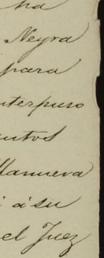 ha
Negra
para
nterpuso
entos
llanueva
i á su
el Juez